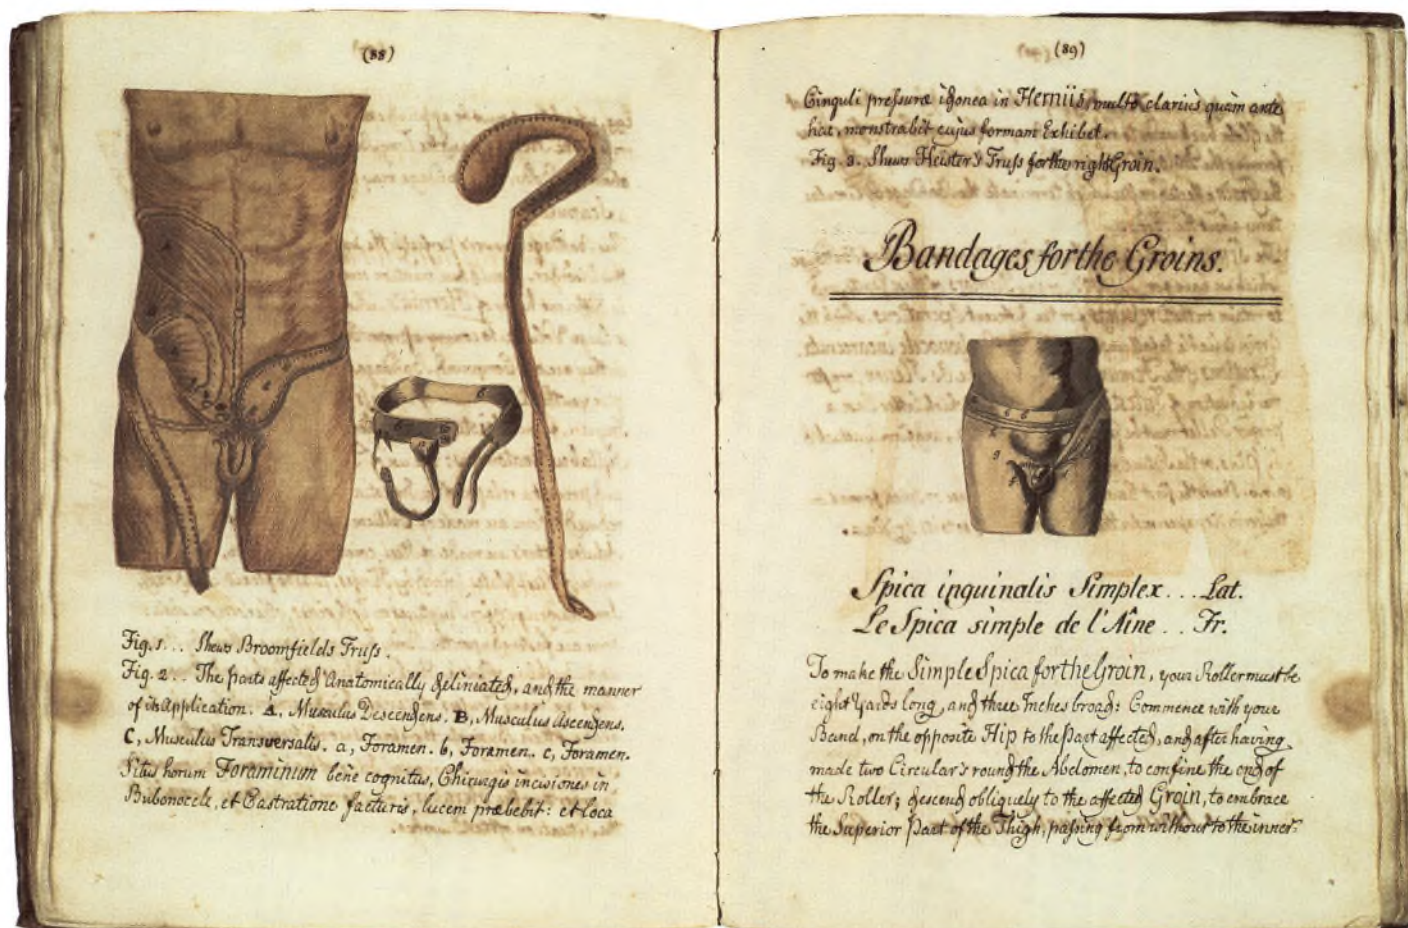 (88)
Fig. 1... Shews Broomfields Truſs.
Fig. 2.. The parts affected Anatomically deliniated, and the manner
of its Application. A, Musculus Descendens. B, Musculus Ascendens.
C, Musculus Transversalis. a, Foramen. b, Foramen. c, Foramen.
Situs horum Foraminum bene cognitus, Chirurgis incisiones in
Bubonocele, et Castratione facturis, lucem præbebit: et loca
(89)
Cinguli preſsuræ idonea in Herniis, multo clarius quam ante
hac, monstrabit cujus formam Exhibet.
Fig. 3. Shews Heister's Truſs for the right Groin.
Bandages for the Groins.
Spica inguinalis Simplex... Lat.
Le Spica simple de l'Aîne.. Fr.
To make the Simple Spica for the Groin, your Roller must be
eight Yards long, and three Inches broad: Commence with your
Band, on the opposite Hip to the Part affected, and after having
made two Circular's round the Abdomen, to confine the end of
the Roller; descend obliquely to the affected Groin, to embrace
the Superior Part of the Thigh, paſsing from without to the inner-